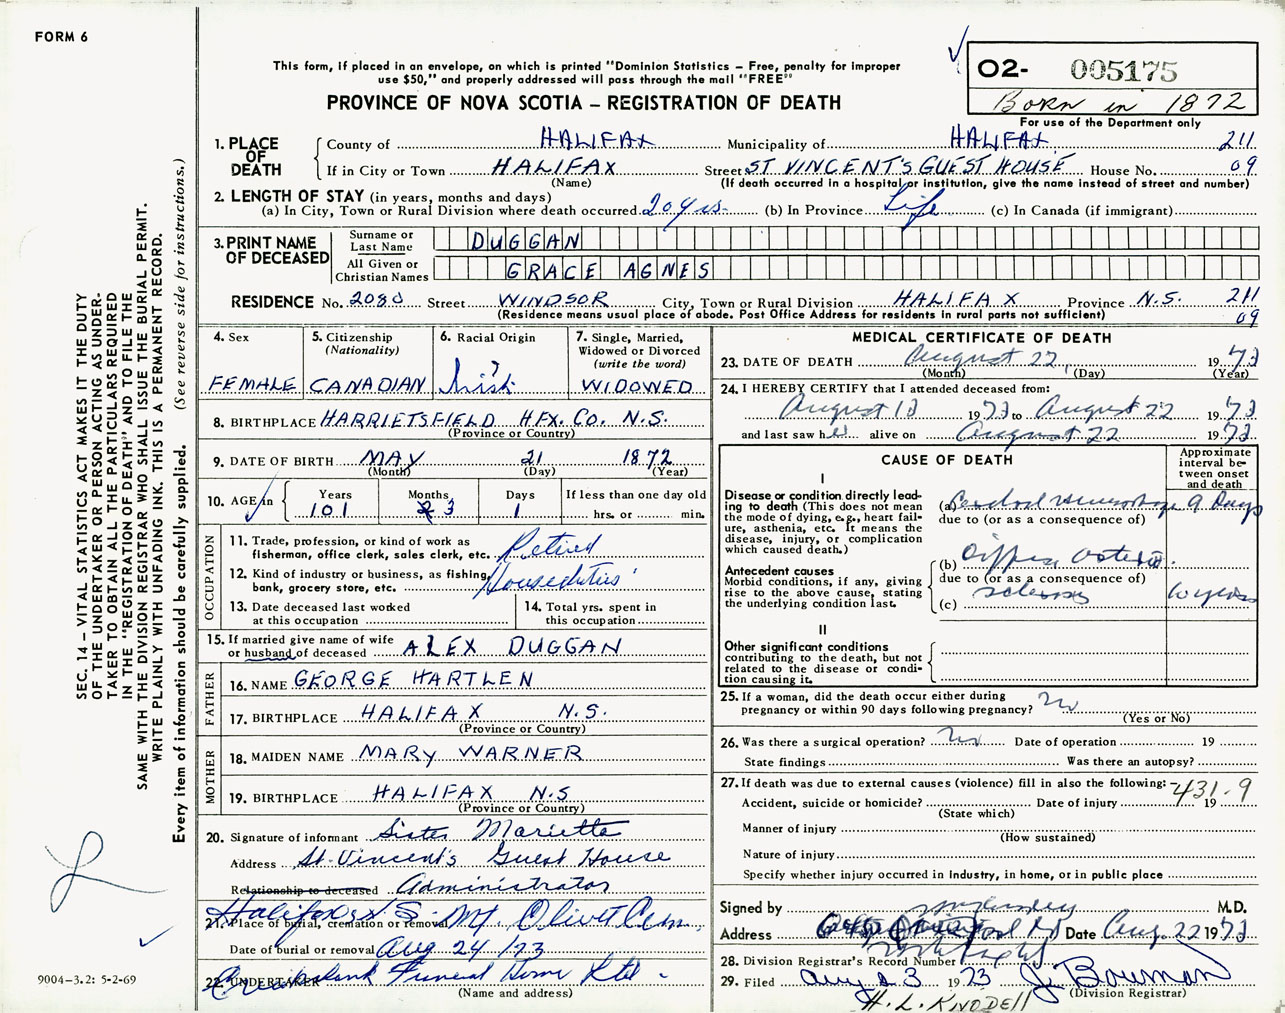 FORM 6
This form, if placed in an envelope, on which is printed "Dominion Statistics – Free, penalty for improper
use $50," and properly addressed will pass through the mail "FREE"
PROVINCE OF NOVA SCOTIA – REGISTRATION OF DEATH
02- 005175
Born in 1872
For use of the Department only
1. PLACE OF DEATH
County of HALIFAX Municipality of HALIFAX 211
If in City or Town HALIFAX Street ST VINCENT'S GUEST HOUSE House No. 09
(Name) (If death occurred in a hospital or institution, give the name instead of street and number)
2. LENGTH OF STAY (in years, months and days)
(a) In City, Town or Rural Division where death occurred 20 yrs. (b) In Province Life (c) In Canada (if immigrant)
3. PRINT NAME OF DECEASED
Surname or Last Name DUGGAN
All Given or Christian Names GRACE AGNES
RESIDENCE No. 2080 Street WINDSOR City, Town or Rural Division HALIFAX Province N.S. 211
(Residence means usual place of abode. Post Office Address for residents in rural parts not sufficient) 09
4. Sex
FEMALE
5. Citizenship
(Nationality)
CANADIAN
6. Racial Origin
Irish ?
7. Single, Married,
Widowed or Divorced
(write the word)
WIDOWED
8. BIRTHPLACE HARRIETSFIELD HFX. Co. N.S.
(Province or Country)
9. DATE OF BIRTH MAY 21 1872
(Month) (Day) (Year)
10. AGE in Years Months Days If less than one day old
101 3 1 hrs. or min.
OCCUPATION
11. Trade, profession, or kind of work as
fisherman, office clerk, sales clerk, etc. Retired
12. Kind of industry or business, as fishing,
bank, grocery store, etc. Houseduties
13. Date deceased last worked
at this occupation
14. Total yrs. spent in
this occupation
15. If married give name of wife
or husband of deceased ALEX DUGGAN
FATHER
16. NAME GEORGE HARTLEN
17. BIRTHPLACE HALIFAX N.S.
(Province or Country)
MOTHER
18. MAIDEN NAME MARY WARNER
19. BIRTHPLACE HALIFAX N.S
(Province or Country)
20. Signature of informant Sister Marietta
Address St. Vincent's Guest House
Relationship to deceased Administrator
21. Place of burial, cremation or removal Halifax N.S. Mt. Olivet Cem.
Date of burial or removal Aug 24/73
22. UNDERTAKER Cruikshank Funeral Home Ltd.
(Name and address)
MEDICAL CERTIFICATE OF DEATH
23. DATE OF DEATH August 22 1973
(Month) (Day) (Year)
24. I HEREBY CERTIFY that I attended deceased from:
August 13 1973 to August 22 1973
and last saw her alive on August 22 1973
CAUSE OF DEATH
Approximate interval between onset and death
I
Disease or condition directly lead-
ing to death (This does not mean
the mode of dying, e.g., heart fail-
ure, asthenia, etc. It means the
disease, injury, or complication
which caused death.)
(a) Cerebral Hemorrhage 9 Days
due to (or as a consequence of)
Antecedent causes
Morbid conditions, if any, giving
rise to the above cause, stating
the underlying condition last.
(b)
due to (or as a consequence of)
(c) sclerosis years
II
Other significant conditions
contributing to the death, but not
related to the disease or condi-
tion causing it.
25. If a woman, did the death occur either during
pregnancy or within 90 days following pregnancy? No
(Yes or No)
26. Was there a surgical operation? No Date of operation 19
State findings Was there an autopsy?
27. If death was due to external causes (violence) fill in also the following: 431.9
Accident, suicide or homicide? Date of injury 19
(State which)
Manner of injury
(How sustained)
Nature of injury
Specify whether injury occurred in industry, in home, or in public place
Signed by M.D.
Address Date Aug. 22 1973
28. Division Registrar's Record Number
29. Filed Aug 23 1973 J. Bowman
(Division Registrar)
H. L. KNODELL
SEC. 14 – VITAL STATISTICS ACT MAKES IT THE DUTY
OF THE UNDERTAKER OR PERSON ACTING AS UNDER-
TAKER TO OBTAIN ALL THE PARTICULARS REQUIRED
IN THE "REGISTRATION OF DEATH" AND TO FILE THE
SAME WITH THE DIVISION REGISTRAR WHO SHALL ISSUE THE BURIAL PERMIT.
WRITE PLAINLY WITH UNFADING INK. THIS IS A PERMANENT RECORD.
Every item of information should be carefully supplied. (See reverse side for instructions.)
9004–3.2: 5-2-69